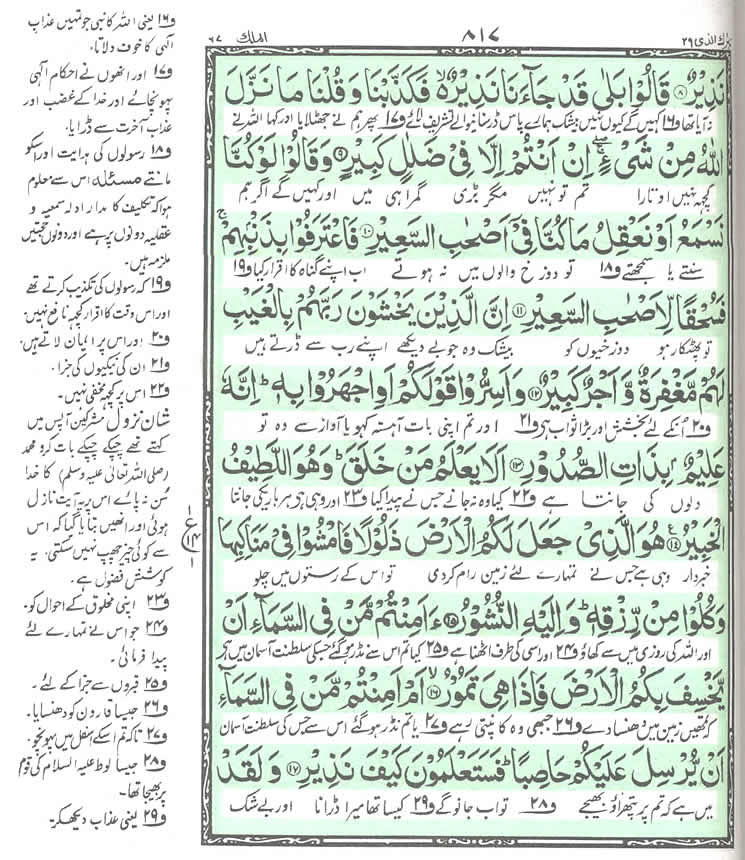 تبٰرک الذی ۲۹
۸۱۷
الملک ۶۷
نَذِیْرٌ ۸ قَالُوْا بَلٰی قَدْ جَآءَنَا نَذِیْرٌ فَكَذَّبْنَا وَ قُلْنَا مَا نَزَّلَ
نہ آیا تھا و۱۶ کہیں گے کیوں نہیں بیشک ہمارے پاس ڈر سنانے والے تشریف لائے و۱۷ پھر ہم نے جھٹلایا اور کہا اللہ نے
اللّٰهُ مِنْ شَیْءٍ اِنْ اَنْتُمْ اِلَّا فِیْ ضَلٰلٍ كَبِیْرٍ ۹ وَ قَالُوْا لَوْ كُنَّا
کچھ نہیں اوتارا تم تو نہیں مگر بڑی گمراہی میں اور کہیں گے اگر ہم
نَسْمَعُ اَوْ نَعْقِلُ مَا كُنَّا فِیْۤ اَصْحٰبِ السَّعِیْرِ ۱۰ فَاعْتَرَفُوْا بِذَنْۢبِهِمْ ۚ
سنتے یا سمجھتے و۱۸ تو دوزخ والوں میں نہ ہوتے اب اپنے گناہ کا اقرار کیا و۱۹
فَسُحْقًا لِّاَصْحٰبِ السَّعِیْرِ ۱۱ اِنَّ الَّذِیْنَ یَخْشَوْنَ رَبَّهُمْ بِالْغَیْبِ
تو پھٹکار ہو دوزخیوں کو بیشک وہ جو بے دیکھے اپنے رب سے ڈرتے ہیں
لَهُمْ مَّغْفِرَةٌ وَّ اَجْرٌ كَبِیْرٌ ۱۲ وَ اَسِرُّوْا قَوْلَكُمْ اَوِ اجْهَرُوْا بِهٖ ؕ اِنَّهٗ
و۲۰ انکے لئے بخشش اور بڑا ثواب ہے و۲۱ اور تم اپنی بات آہستہ کہو یا آواز سے وہ تو
عَلِیْمٌۢ بِذَاتِ الصُّدُوْرِ ۱۳ اَلَا یَعْلَمُ مَنْ خَلَقَ ؕ وَ هُوَ اللَّطِیْفُ
دلوں کی جانتا ہے و۲۲ کیا وہ نہ جانے جس نے پیدا کیا و۲۳ اور وہی ہے ہر باریکی جانتا
الْخَبِیْرُ ۱۴ هُوَ الَّذِیْ جَعَلَ لَكُمُ الْاَرْضَ ذَلُوْلًا فَامْشُوْا فِیْ مَنَاكِبِهَا
خبردار وہی ہے جس نے تمہارے لئے زمین رام کردی تو اس کے رستوں میں چلو
وَ كُلُوْا مِنْ رِّزْقِهٖ ؕ وَ اِلَیْهِ النُّشُوْرُ ۱۵ ءَاَمِنْتُمْ مَّنْ فِی السَّمَآءِ اَنْ
اور اللہ کی روزی میں سے کھاؤ و۲۴ اور اسی کی طرف اٹھنا ہے و۲۵ کیا تم اس سے نڈر ہوگئے جسکی سلطنت آسمان میں ہے
یَّخْسِفَ بِكُمُ الْاَرْضَ فَاِذَا هِیَ تَمُوْرُ ۱۶ اَمْ اَمِنْتُمْ مَّنْ فِی السَّمَآءِ
کہ تمھیں زمین میں دھنسادے و۲۶ جبھی وہ کانپتی رہے و۲۷ یا تم نڈر ہوگئے اس سے جس کی سلطنت آسمان
اَنْ یُّرْسِلَ عَلَیْكُمْ حَاصِبًا ؕ فَسَتَعْلَمُوْنَ كَیْفَ نَذِیْرِ ۱۷ وَ لَقَدْ
میں ہے کہ تم پر پتھراؤ بھیجے و۲۸ تو اب جانو گے و۲۹ کیسا تھا میرا ڈرانا اور بے شک
و۱۶ یعنی اللہ کا نبی جو تمہیں عذاب
الٰہی کا خوف دلاتا۔
و۱۷ اور انھوں نے احکام الٰہی
پہونچائے اور خدا کے غضب اور
عذاب آخرت سے ڈرایا۔
و۱۸ رسولوں کی ہدایت اور اسکو
مانتے مسئلہ اس سے معلوم
ہوا کہ تکلیف کا مدار ادلہ سمعیہ و
عقلیہ دونوں پر ہے اور دونوں حجتیں
ملزمہ ہیں۔
و۱۹ کہ رسولوں کی تکذیب کرتے تھے
اور اس وقت کا اقرار کچھ نافع نہیں۔
و۲۰ اور اس پر ایمان لاتے ہیں۔
و۲۱ ان کی نیکیوں کی جزا۔
و۲۲ اس پر کچھ مخفی نہیں۔
شان نزول مشرکین آپس میں
کہتے تھے چپکے چپکے بات کرو محمد
(صلی اللہ تعالیٰ علیہ وسلم) کا خدا
سن نہ پائے اس پر یہ آیت نازل
ہوئی اور انھیں بتایا گیا کہ اس
سے کوئی چیز چھپ نہیں سکتی۔ یہ
کوشش فضول ہے۔
و۲۳ اپنی مخلوق کے احوال کو۔
و۲۴ جو اس نے تمہارے لئے
پیدا فرمائی۔
و۲۵ قبروں سے جزا کے لئے۔
و۲۶ جیسا قارون کو دھنسایا۔
و۲۷ تاکہ تم اسکے اسفل میں پہونچو۔
و۲۸ جیسا لوط علیہ السلام کی قوم
پر بھیجا تھا۔
و۲۹ یعنی عذاب دیکھ کر۔
ع
۱۴
۱